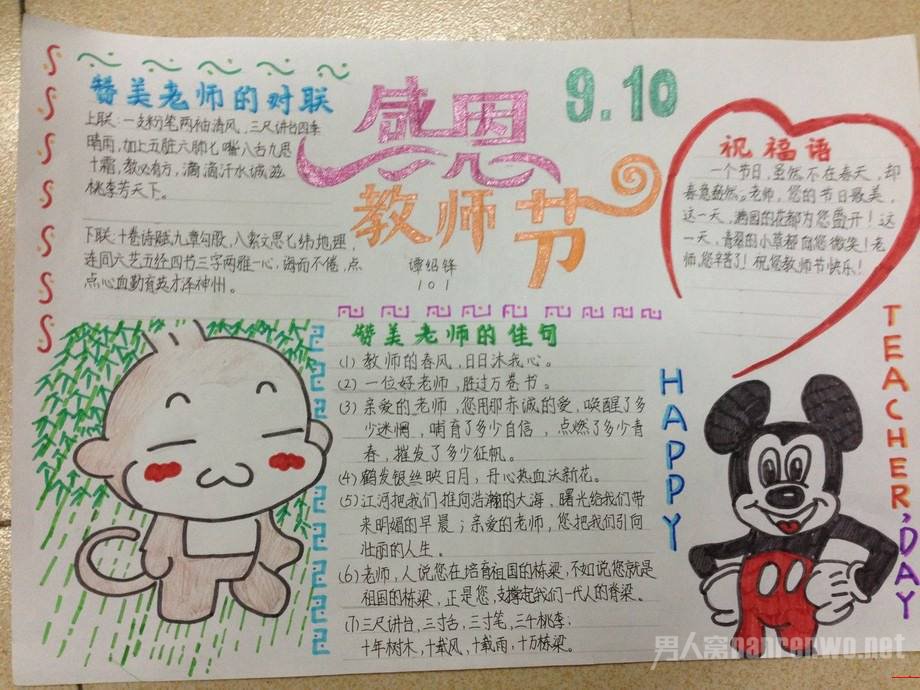 感恩
教师节
9.10
谭绍锋
101
赞美老师的对联
上联：一支粉笔两袖清风，三尺讲台四季
晴雨，加上五脏六肺七嘴八舌九思
十霜，教必有方，滴滴汗水诚滋
桃李芳天下。
下联：十卷诗赋九章勾股，八索文思七纬地理，
连同六艺五经四节三字两雅一心，诲而不倦，点
点心血勤育英才泽神州。
祝福语
一个节日，虽然不在春天，却
春意盎然。老师，您的节日最美，
这一天，满园的花都为您盛开！这
一天，青翠的小草都向您微笑！老
师，您辛苦了！祝您教师节快乐！
赞美老师的佳句
(1) 教师的春风，日日沐我心。
(2) 一位好老师，胜过万卷书。
(3) 亲爱的老师，您用那赤诚的爱，唤醒了多
少迷惘，哺育了多少自信，点燃了多少青
春，摧发了多少征帆。
(4) 鹤发银丝映日月，丹心热血沃新花。
(5) 江河把我们推向浩瀚的大海，曙光给我们带
来明媚的早晨；亲爱的老师，您把我们引向
壮丽的人生。
(6) 老师，人说您在培育祖国的栋梁，不如说您就是
祖国的栋梁，正是您，支撑起我们一代人的脊梁。
(7) 三尺讲台，三寸舌，三寸笔，三千桃李；
十年树木，十载风，十载雨，十万栋梁。
HAPPY
TEACHER,DAY
男人窝nanrenwo.net